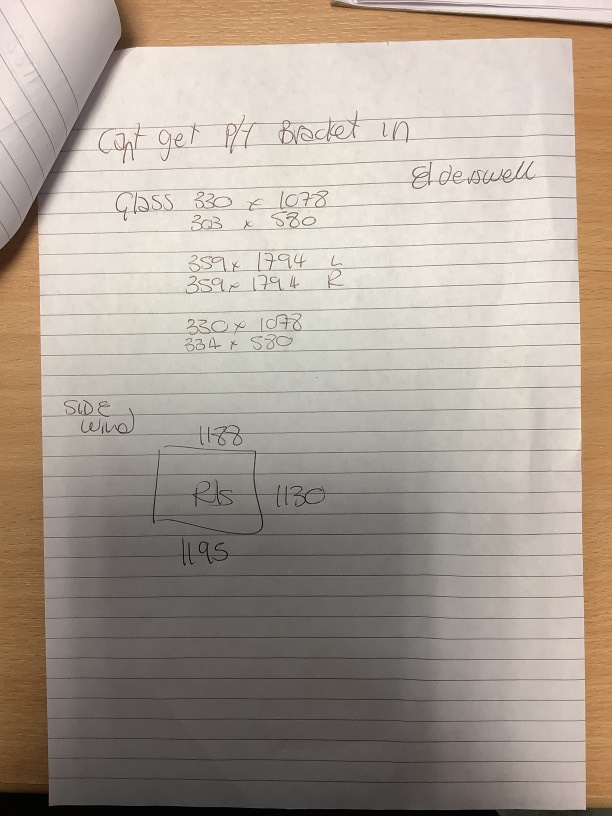 Cant get P/T Bracket in
Elderswell
Glass 330 x 1078
303 x 580
359 x 1794 L
359 x 1794 R
330 x 1078
334 x 580
SIDE
Wind
1188
Rls 1130
1195